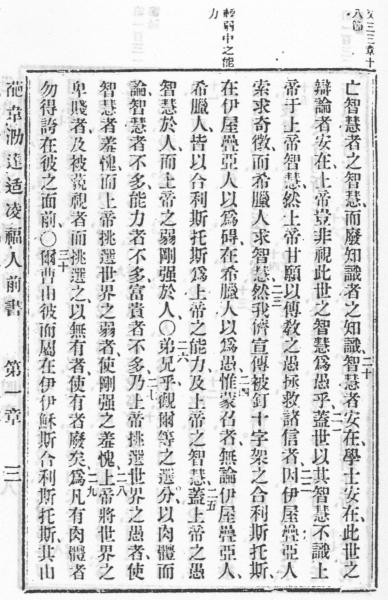 亡智慧者之智慧而廢知識者之知識智慧者安在學士安在此世之
辯論者安在上帝豈非視此世之智慧為愚乎蓋世以其智慧不識上
帝于上帝智慧然上帝甘願以傳教之愚拯救諸信者因伊屋疊亞人
索求奇徵而希臘人求智慧然我儕宣傳被釘十字架之合利斯托斯
在伊屋疊亞人以爲碍在希臘人以爲愚惟蒙召者無論伊屋疊亞人
希臘人皆以合利斯托斯爲上帝之能力及上帝之智慧蓋上帝之愚
智慧於人而上帝之弱剛强於人〇弟兄乎觀爾等之選分以肉體而
論智慧者不多能力者不多富貴者不多乃上帝挑選世界之愚者使
智慧者羞愧而上帝挑選世界之弱者使剛强之羞愧上帝將世界之
卑賤者及被藐視者而挑選之以無有者使有者廢矣爲凡有肉體者
勿得誇在彼之面前〇爾曹由彼而屬在伊伊穌斯合利斯托斯其由
達适凌福人前書 第一章 三